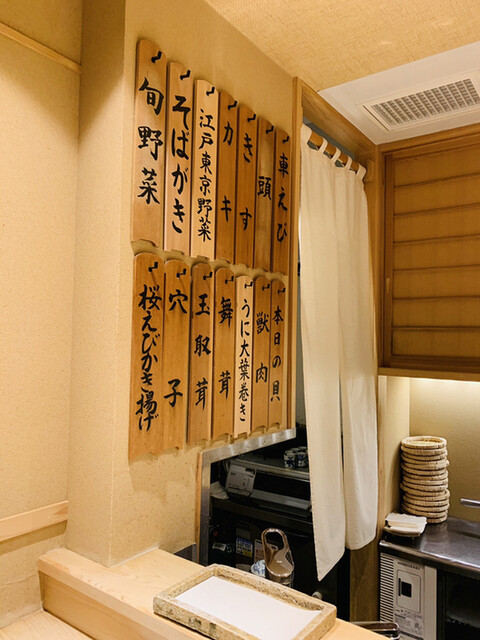 車えび
頭
きす
カキ
江戸東京野菜
そばがき
旬野菜
本日の貝
獣肉
うに大葉巻き
舞茸
玉取茸
穴子
桜えびかき揚げ